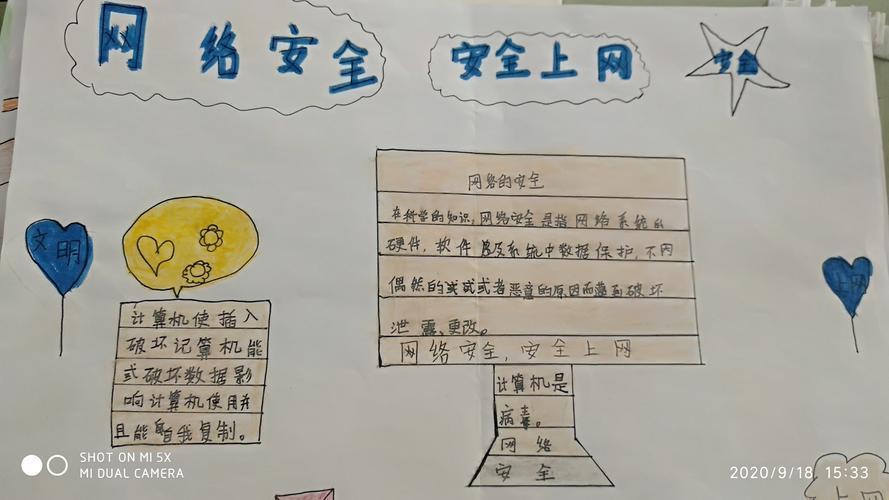 网络安全
安全上网
安全
网络的安全
在科学的知识，网络安全是指网络系统的
硬件，软件及系统中数据保护，不因
偶然的或者恶意的原因而遭到破坏
泄露、更改。
网络安全，安全上网
计算机是
病毒。
网络
安全
文明
上网
计算机使插入
破坏记算机能
式破坏数据影
响计算机使用并
且能自我复制。
上网
SHOT ON MI 5X
MI DUAL CAMERA
2020/9/18 15:33